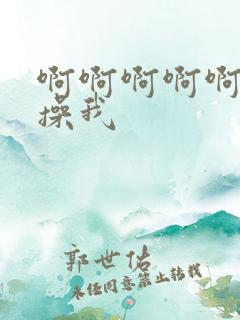 啊啊啊啊啊
操我
郭世佑
未经同意禁止转载